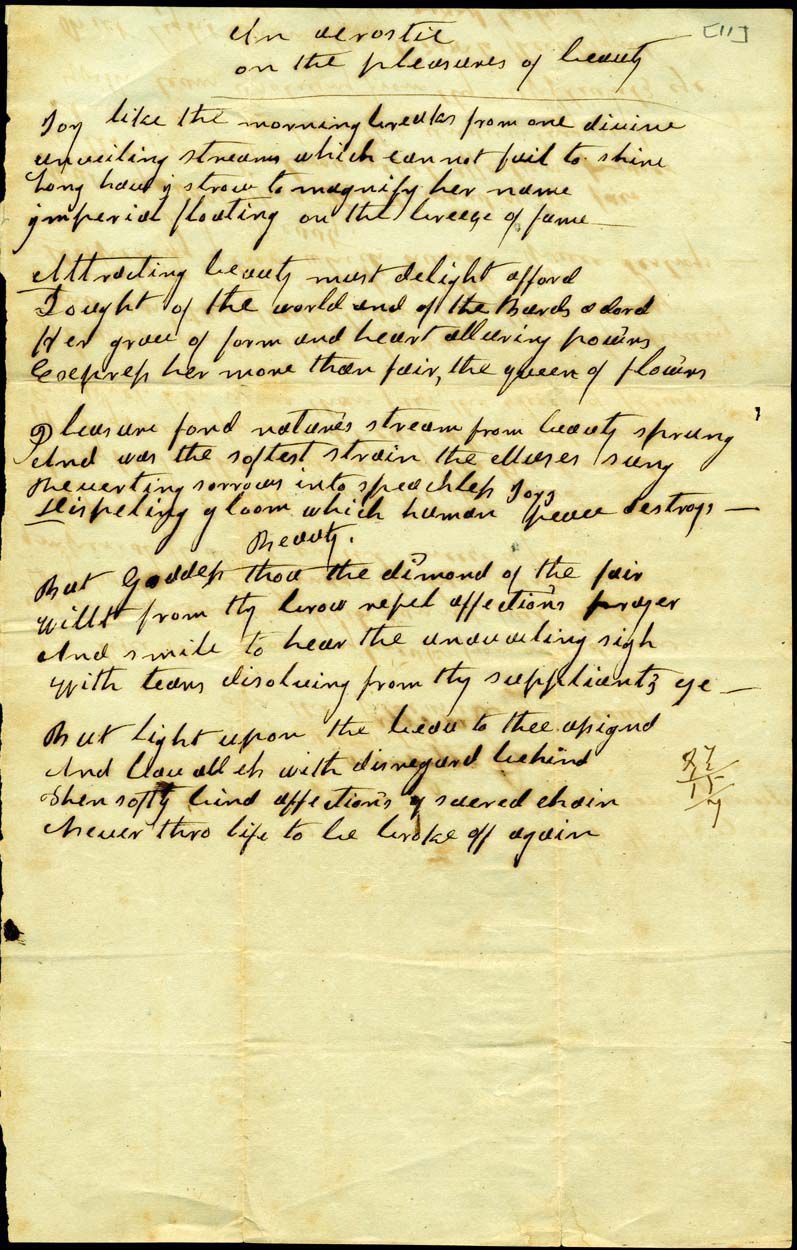 [11]
An acrostic
on the pleasures of beauty
Joy like the morning breaks from one divine
unveiling streams which can not fail to shine
Long have i strove to magnify her name
imperial floating on the breeze of fame —
Attracting beauty must delight afford
Sought of the world and of the Bards adord
Her grace of form and heart alluring pow'rs
Express her more than fair, the queen of flow'rs
Pleasure fond nature's stream from beauty sprung
And was the softest strain the Muses sung
Reverting sorrows into speachless Joys
Dispeling gloom which human peace destroys —
Beauty.
But Goddess thou the dimond of the fair
Willt from thy brow repel affection's prayer
And smile to hear the unavailing sigh
With tears disolving from thy suppliants eye —
But light upon the beau to thee asignd
And leav all els with disregard behind
Then softly bind affection's sacred chain
Never thro life to be broke off again